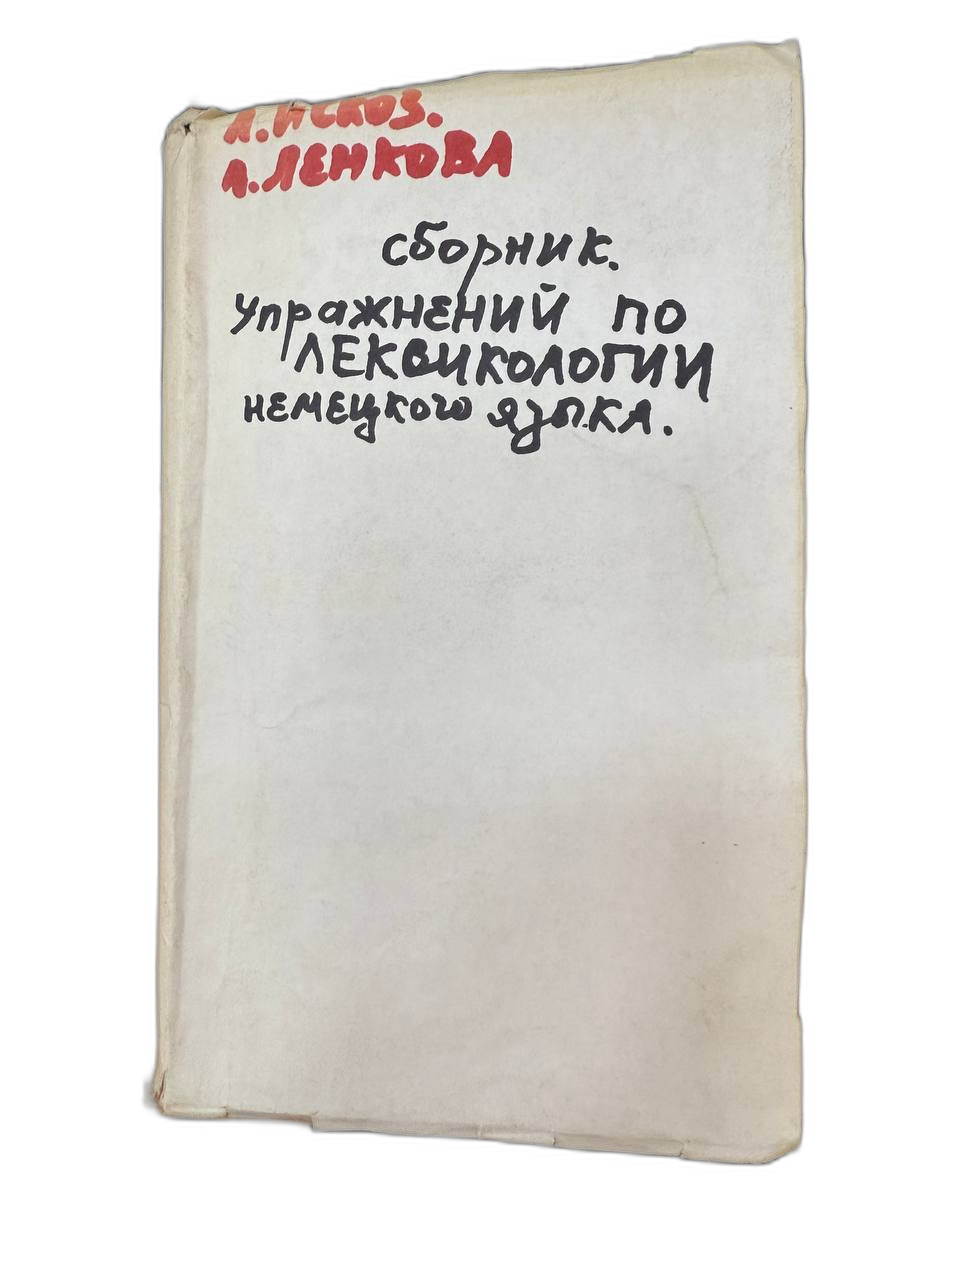 А. Искоз.
А. ЛЕНКОВА
сборник.
Упражнений по
ЛЕКСИКОЛОГИИ
немецкого языка.